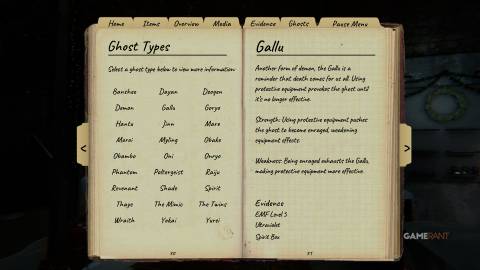 Home Items Overview Media Evidence Ghosts Pause Menu
Ghost Types
Select a ghost type below to view more information:
Banshee Dayan Deogen
Demon Gallu Goryo
Hantu Jinn Mare
Moroi Myling Obake
Obambo Oni Onryo
Phantom Poltergeist Raiju
Revenant Shade Spirit
Thaye The Mimic The Twins
Wraith Yokai Yurei
Gallu
Another form of demon, the Gallu is a
reminder that death comes for us all. Using
protective equipment provokes the ghost until
it's no longer effective.
Strength: Using protective equipment pushes
the ghost to become enraged, weakening
equipment effects.
Weakness: Being enraged exhausts the Gallu,
making protective equipment more effective.
Evidence
EMF Level 5
Ultraviolet
Spirit Box
< >
GAMERANT